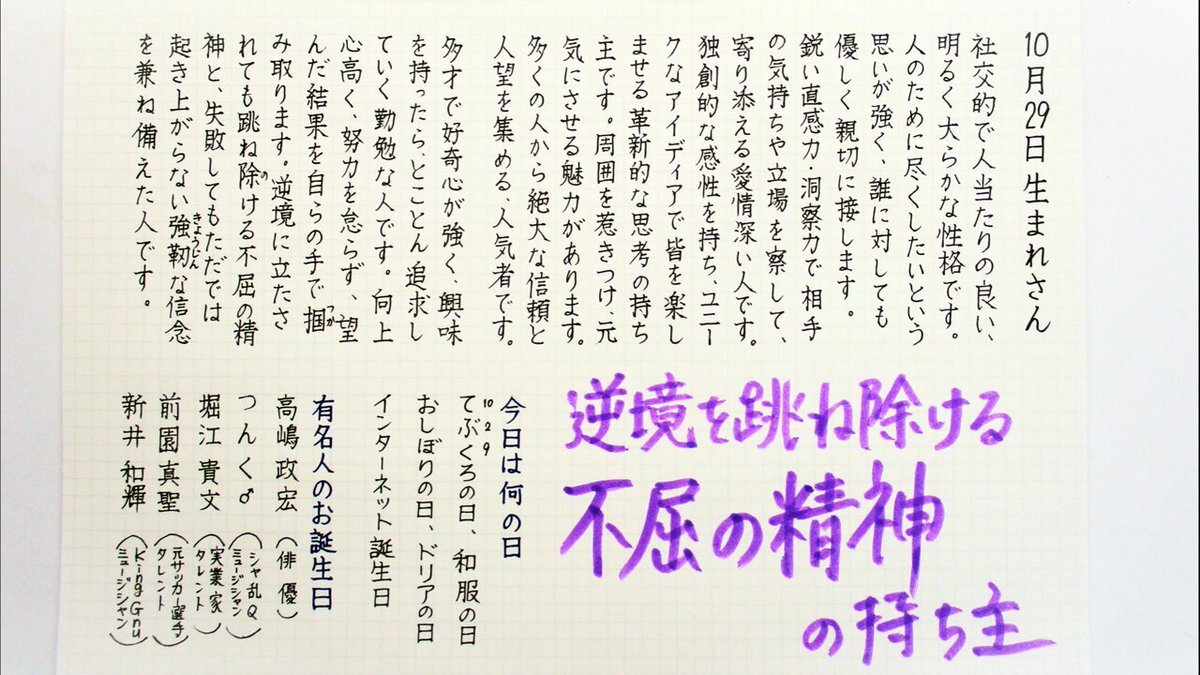 10月29日生まれさん
社交的で人当たりの良い、
明るく大らかな性格です。
人のために尽くしたいという
思いが強く、誰に対しても
優しく親切に接します。
鋭い直感力・洞察力で相手
の気持ちや立場を察して、
寄り添える愛情深い人です。
独創的な感性を持ち、ユニー
クなアイディアで皆を楽し
ませる革新的な思考の持ち
主です。周囲を惹きつけ、元
気にさせる魅力があります。
多くの人から絶大な信頼と
人望を集める、人気者です。
多才で好奇心が強く、興味
を持ったら、とことん追求し
ていく勤勉な人です。向上
心高く、努力を怠らず、望
んだ結果を自らの手で掴
つか
み取ります。逆境に立たさ
れても跳ね除ける不屈の精
の
神と、失敗してもただでは
起き上がらない強靭な信念
きょうじん
を兼ね備えた人です。
逆境を跳ね除ける
不屈の精神
の持ち主
今日は何の日
10 2 9
てぶくろの日、和服の日
おしぼりの日、ドリアの日
インターネット誕生日
有名人のお誕生日
高嶋政宏(俳優)
つんく♂(シャ乱Q
ミュージシャン)
堀江貴文(実業家
タレント)
前園真聖(元サッカー選手
タレント)
新井和輝(King Gnu
ミュージシャン)